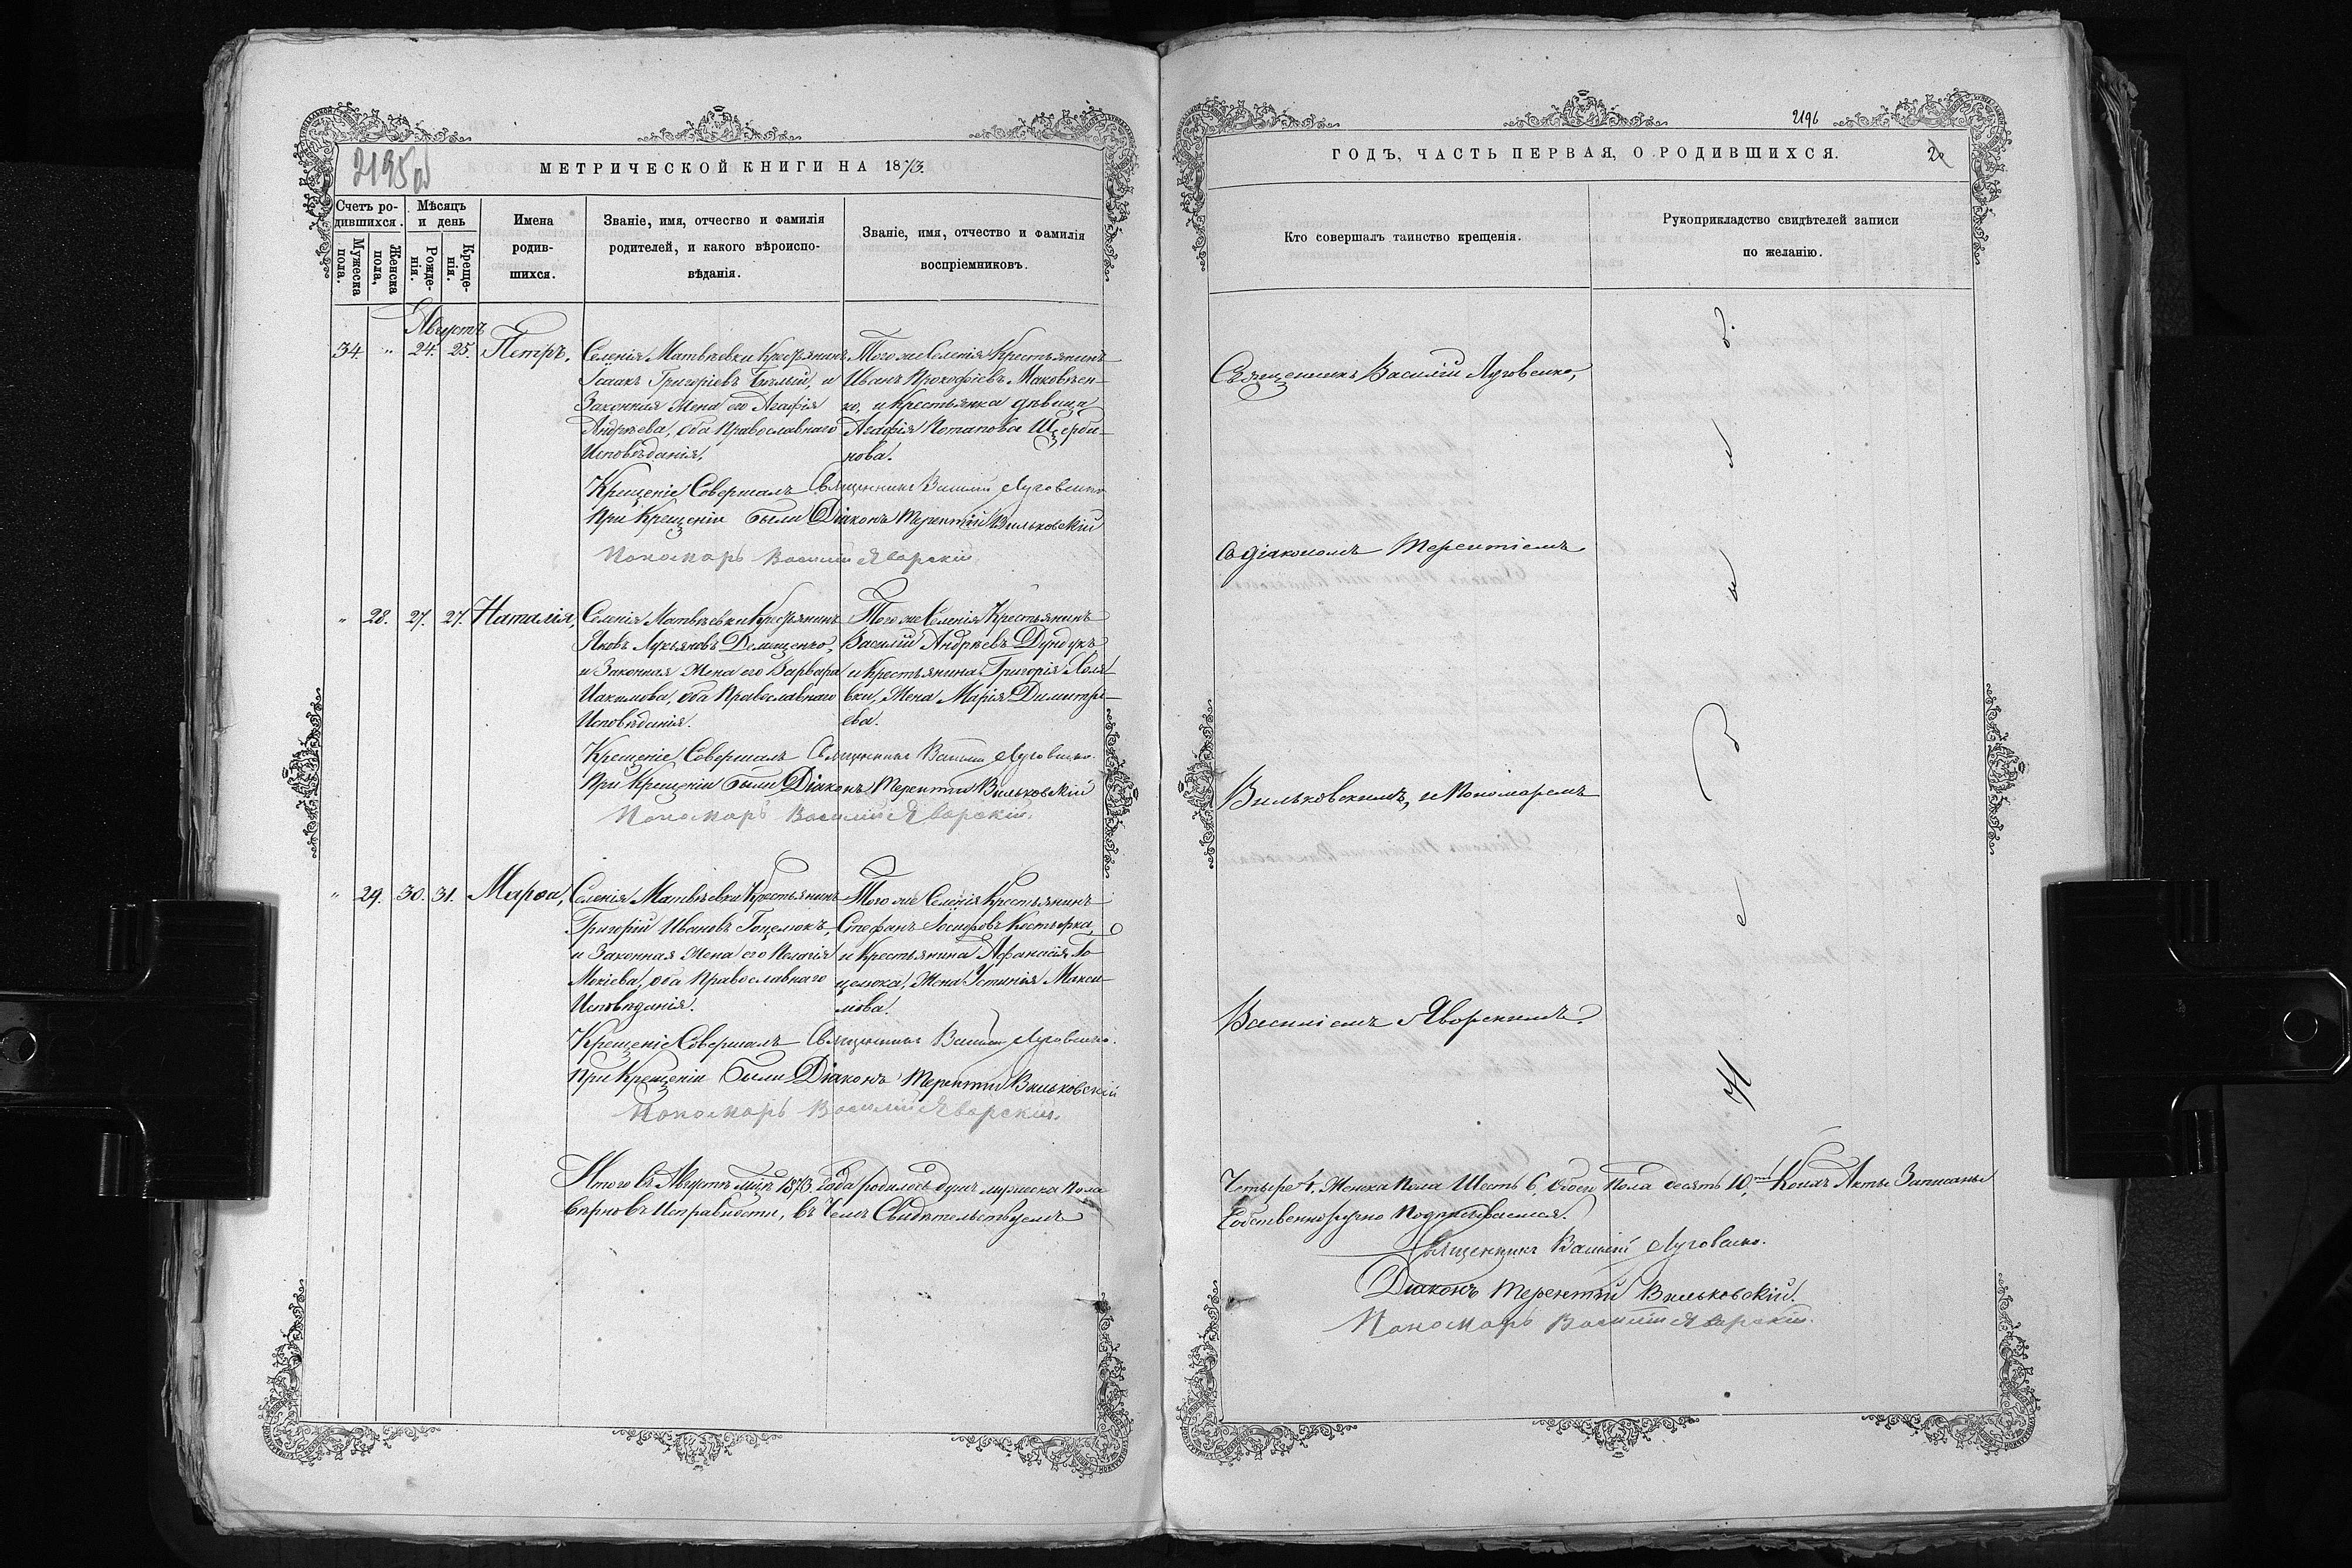 2195 об
МЕТРИЧЕСКОЙ КНИГИ НА 1873.
Счетъ ро-
дившихся.
Мужеска
пола.
Женска
пола,
Мѣсяцъ
и день
Рожде-
нія.
Креще-
нія.
Имена
родив-
шихся.
Званіе, имя, отчество и фамилія
родителей, и какого вѣроиспо-
вѣданія.
Званіе, имя, отчество и фамилія
воспріемниковъ.
Августъ
34. " 24. 25. Петръ,
Селенія Матвѣевки Крестьянинъ
Ісаакъ Григоріевъ Бѣлый, и
Законная Жена его Агафія
Андрѣева, оба Православнаго
Исповѣданія,
Того же Селенія Крестьянинъ
Иванъ Прокофіевъ Маковѣен-
ко, и Крестьянка дѣвица
Агафія Потапова Щерби-
нова.
Крещеніе Совершалъ Священникъ Василій Луговенко
При Крещеніи были Діаконъ Терентій Вильковскій
Пономарь Василій Яворскій
" 28. 27. 27. Наталія,
Селенія Матвѣевки Крестьянинъ
Яковъ Лукьяновъ Демщенко,
и Законная Жена его Варвара
Иакимова, оба Православнаго
Исповѣданія.
Того же Селенія Крестьянинъ
Василій Андрѣевъ Дундукъ
и Крестьянина Григорія Халя-
вки, Жена Марія Димитрі-
ева.
Крещеніе Совершалъ Священникъ Василій Луговенко.
При Крещеніи были Діаконъ Терентій Вильковскій
Пономарь Василій Яворскій.
" 29. 30. 31. Марѳа,
Селенія Матвѣевки Крестьянинъ
Григорій Ивановъ Гоцелюкъ
и Законная Жена его Пелагія
Мокіева, оба Православнаго
Исповѣданія.
Того же Селенія Крестьянинъ
Стефанъ Іосифовъ Костырка,
и Крестьянина Афанасія Го-
целюка, Жена Устинія Макси-
мова.
Крещеніе Совершалъ Священникъ Василій Луговенко.
При Крещеніи были Діаконъ Терентій Вильковскій
Пономарь Василій Яворскій.
Итого въ Августѣ мцѣ 1873. Года родилось душъ мужеска Пола
Вѣрновъ Исправности, въ Чемъ Свидѣтельствуемъ
2196
ГОДЪ, ЧАСТЬ ПЕРВАЯ, О РОДИВШИХСЯ.
Кто совершалъ таинство крещенія.
Рукоприкладство свидѣтелей записи
по желанію.
Священникъ Василій Луговенко,
Съ діакономъ Терентіемъ
Вильковскимъ, и Пономаремъ
Василіемъ Яворскимъ.
Четыре 4, Женска Пола Шесть 6, обоего Пола десять 10, Коихъ Акты Записаны
Собственноручно Подписываемся.
Священникъ Василій Луговенко.
Діаконъ Терентій Вильковскій.
Пономарь Василій Яворскій.